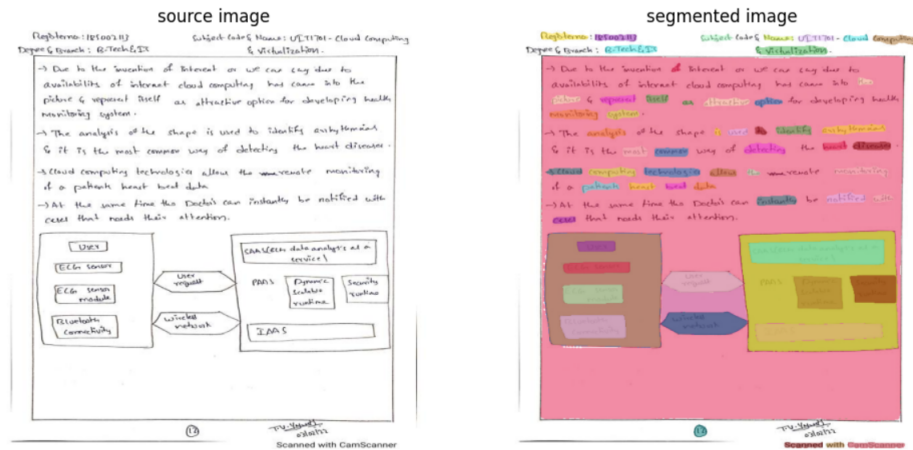 source image
segmented image
Registerno: 185002113
Subject Code & Name: UIT1701 - Cloud Computing
Degree & Branch: B.Tech & IT
& Virtualization.
→ Due to the invention of Internet or we can say due to
availabilities of internet cloud computing has came into the
picture & reposed itself as attractive option for developing health
monitoring system.
→ The analysis of the shape is used to identify arrhythmias
& it is the most common way of detecting the heart diseases.
→ Cloud computing technologies allow the remote monitoring
of a patients heart beat data
→ At the same time the Doctor's can instantly be notified with
cases that needs their attention.
User
ECG sensor
ECG sensor
module
Bluetooth
connectivity
User
request
Wireless
network
SAAS (ECG data analysis as a
service)
PAAS
Dynamic
Scalable
runtime
Security
runtime
IAAS
12
Scanned with CamScanner
Registerno: 185002113
Subject Code & Name: UIT1701 - Cloud Computing
Degree & Branch: B.Tech & IT
& Virtualization.
→ Due to the invention of Internet or we can say due to
availabilities of internet cloud computing has came into the
picture & reposed itself as attractive option for developing health
monitoring system.
→ The analysis of the shape is used to identify arrhythmias
& it is the most common way of detecting the heart diseases.
→ Cloud computing technologies allow the remote monitoring
of a patients heart beat data
→ At the same time the Doctor's can instantly be notified with
cases that needs their attention.
User
ECG sensor
ECG sensor
module
Bluetooth
connectivity
User
request
Wireless
network
SAAS (ECG data analysis as a
service)
PAAS
Dynamic
Scalable
runtime
Security
runtime
12
Scanned with CamScanner